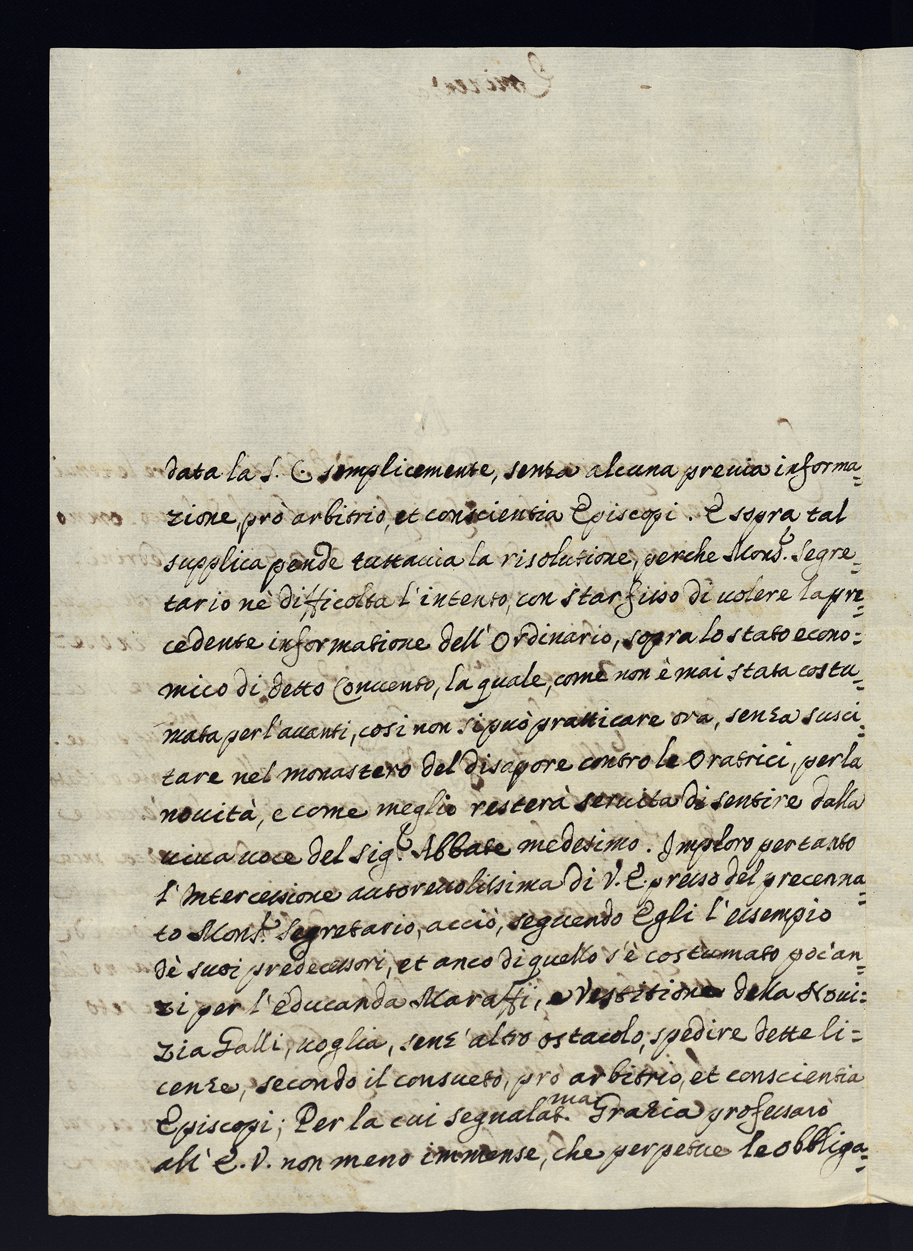 data la S. C. semplicemente, senza alcuna previa informa=
zione, prò arbitrio, et conscientia Episcopi. E sopra tal
supplica pende tuttavia la risolutione, perche Mons.r Segre=
tario nè difficolta l'intento, con star fisso di volere la pre=
cedente informatione dell'Ordinario, sopra lo stato econo=
mico di detto Convento, la quale, come non è mai stata costu=
mata per l'avanti, cosi non si può pratticare ora, senza susci=
tare nel monastero del disapore contro le Oratrici, per la
novità, e come meglio resterà servita di sentire dalla
viva voce del sig.r Abbate medesimo. Imploro per tanto
l'Intercessione autorevolissima di V. E. presso del precenna=
to Mons.r Segretario, acciò, seguendo Egli l'essempio
dè suoi predecessori, et anco di quello s'è costumato poc'an=
zi per l'educanda Maraffi, e Vestitione della Novi=
zia Galli, voglia, senz'altro ostacolo, spedire dette li=
cenze, secondo il consueto, prò arbitrio, et conscientia
Episcopi; Per la cui segnalat.ma Grazia professarò
all'E. V. non meno immense, che perpetue le obbliga=